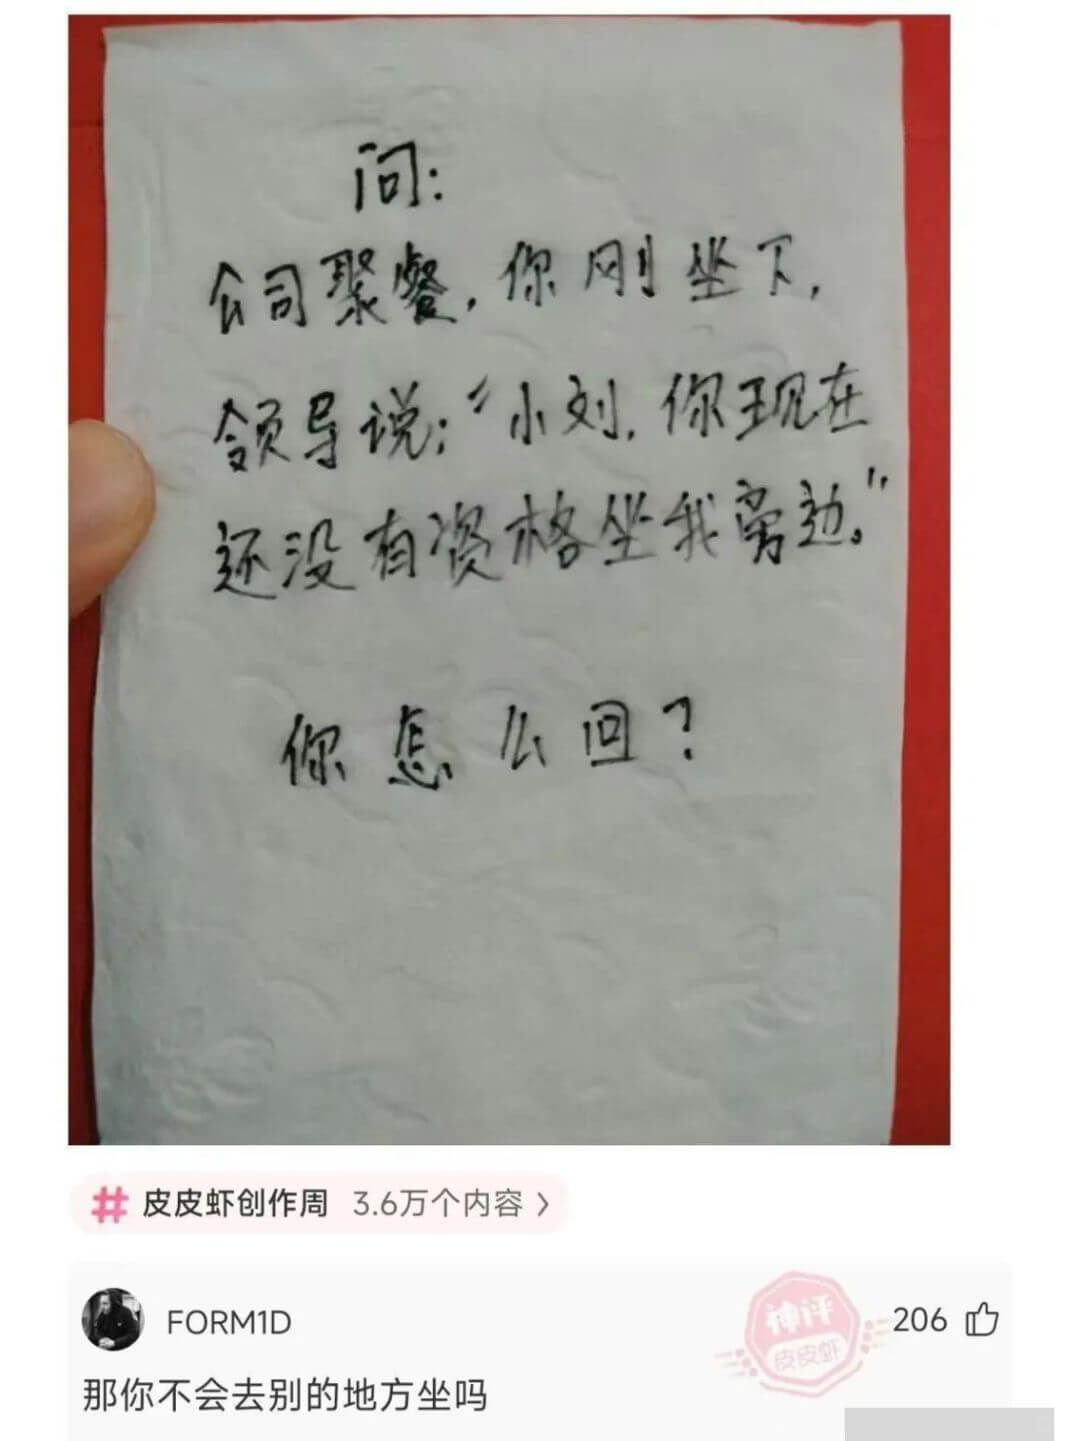 问:
公司聚餐,你刚坐下,
领导说:“小刘,你现在
还没有资格坐我旁边。”
你怎么回?
# 皮皮虾创作周 3.6万个内容 >
FORM1D
神评
皮皮虾
206
那你不会去别的地方坐吗